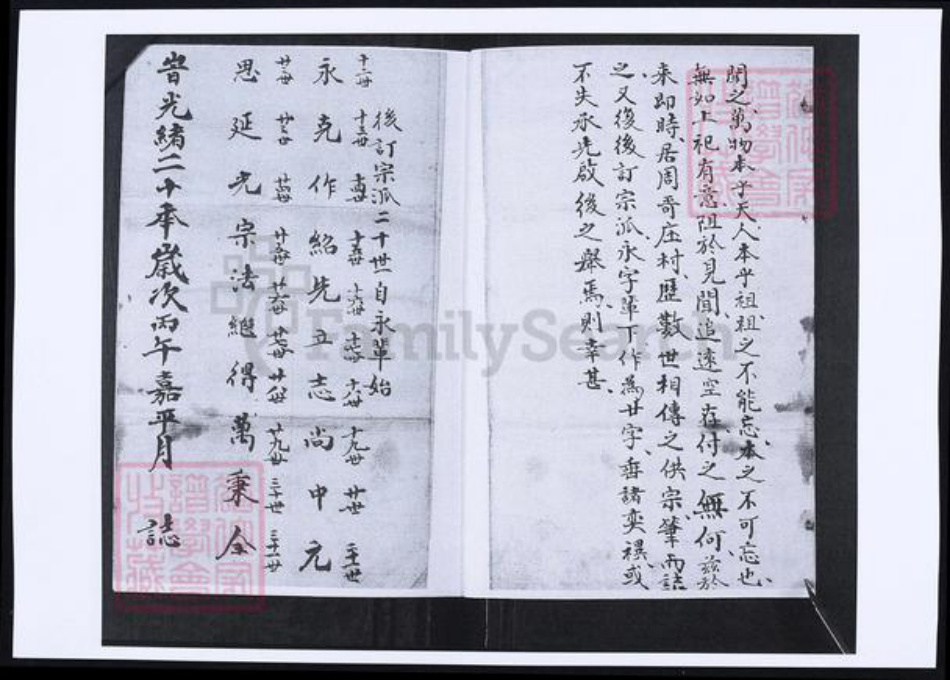 聞之萬物本乎天人本乎祖祖之不能忘本之不可忘也
無如上祀有意阻於見聞追遠空存付之無何茲於
來即時居周哥庄村歷數世相傳之供宗筆而誌
之又復後訂宗派永字輩下作為廿字垂諸奕禩或
不失承先啟後之舉焉則幸甚
後訂宗派二十世自永輩始
十二世 十三世 十四世 十五世 十六世 十七世 十八世 十九世 廿世 二十一世
永克作紹先立志尚中元
廿二世 廿三世 廿四世 廿五世 廿六世 廿七世 廿八世 廿九世 三十世 三十一世
思延光宗法繼得萬秉全
光緒二十年歲次丙午嘉平月 誌
FamilySearch